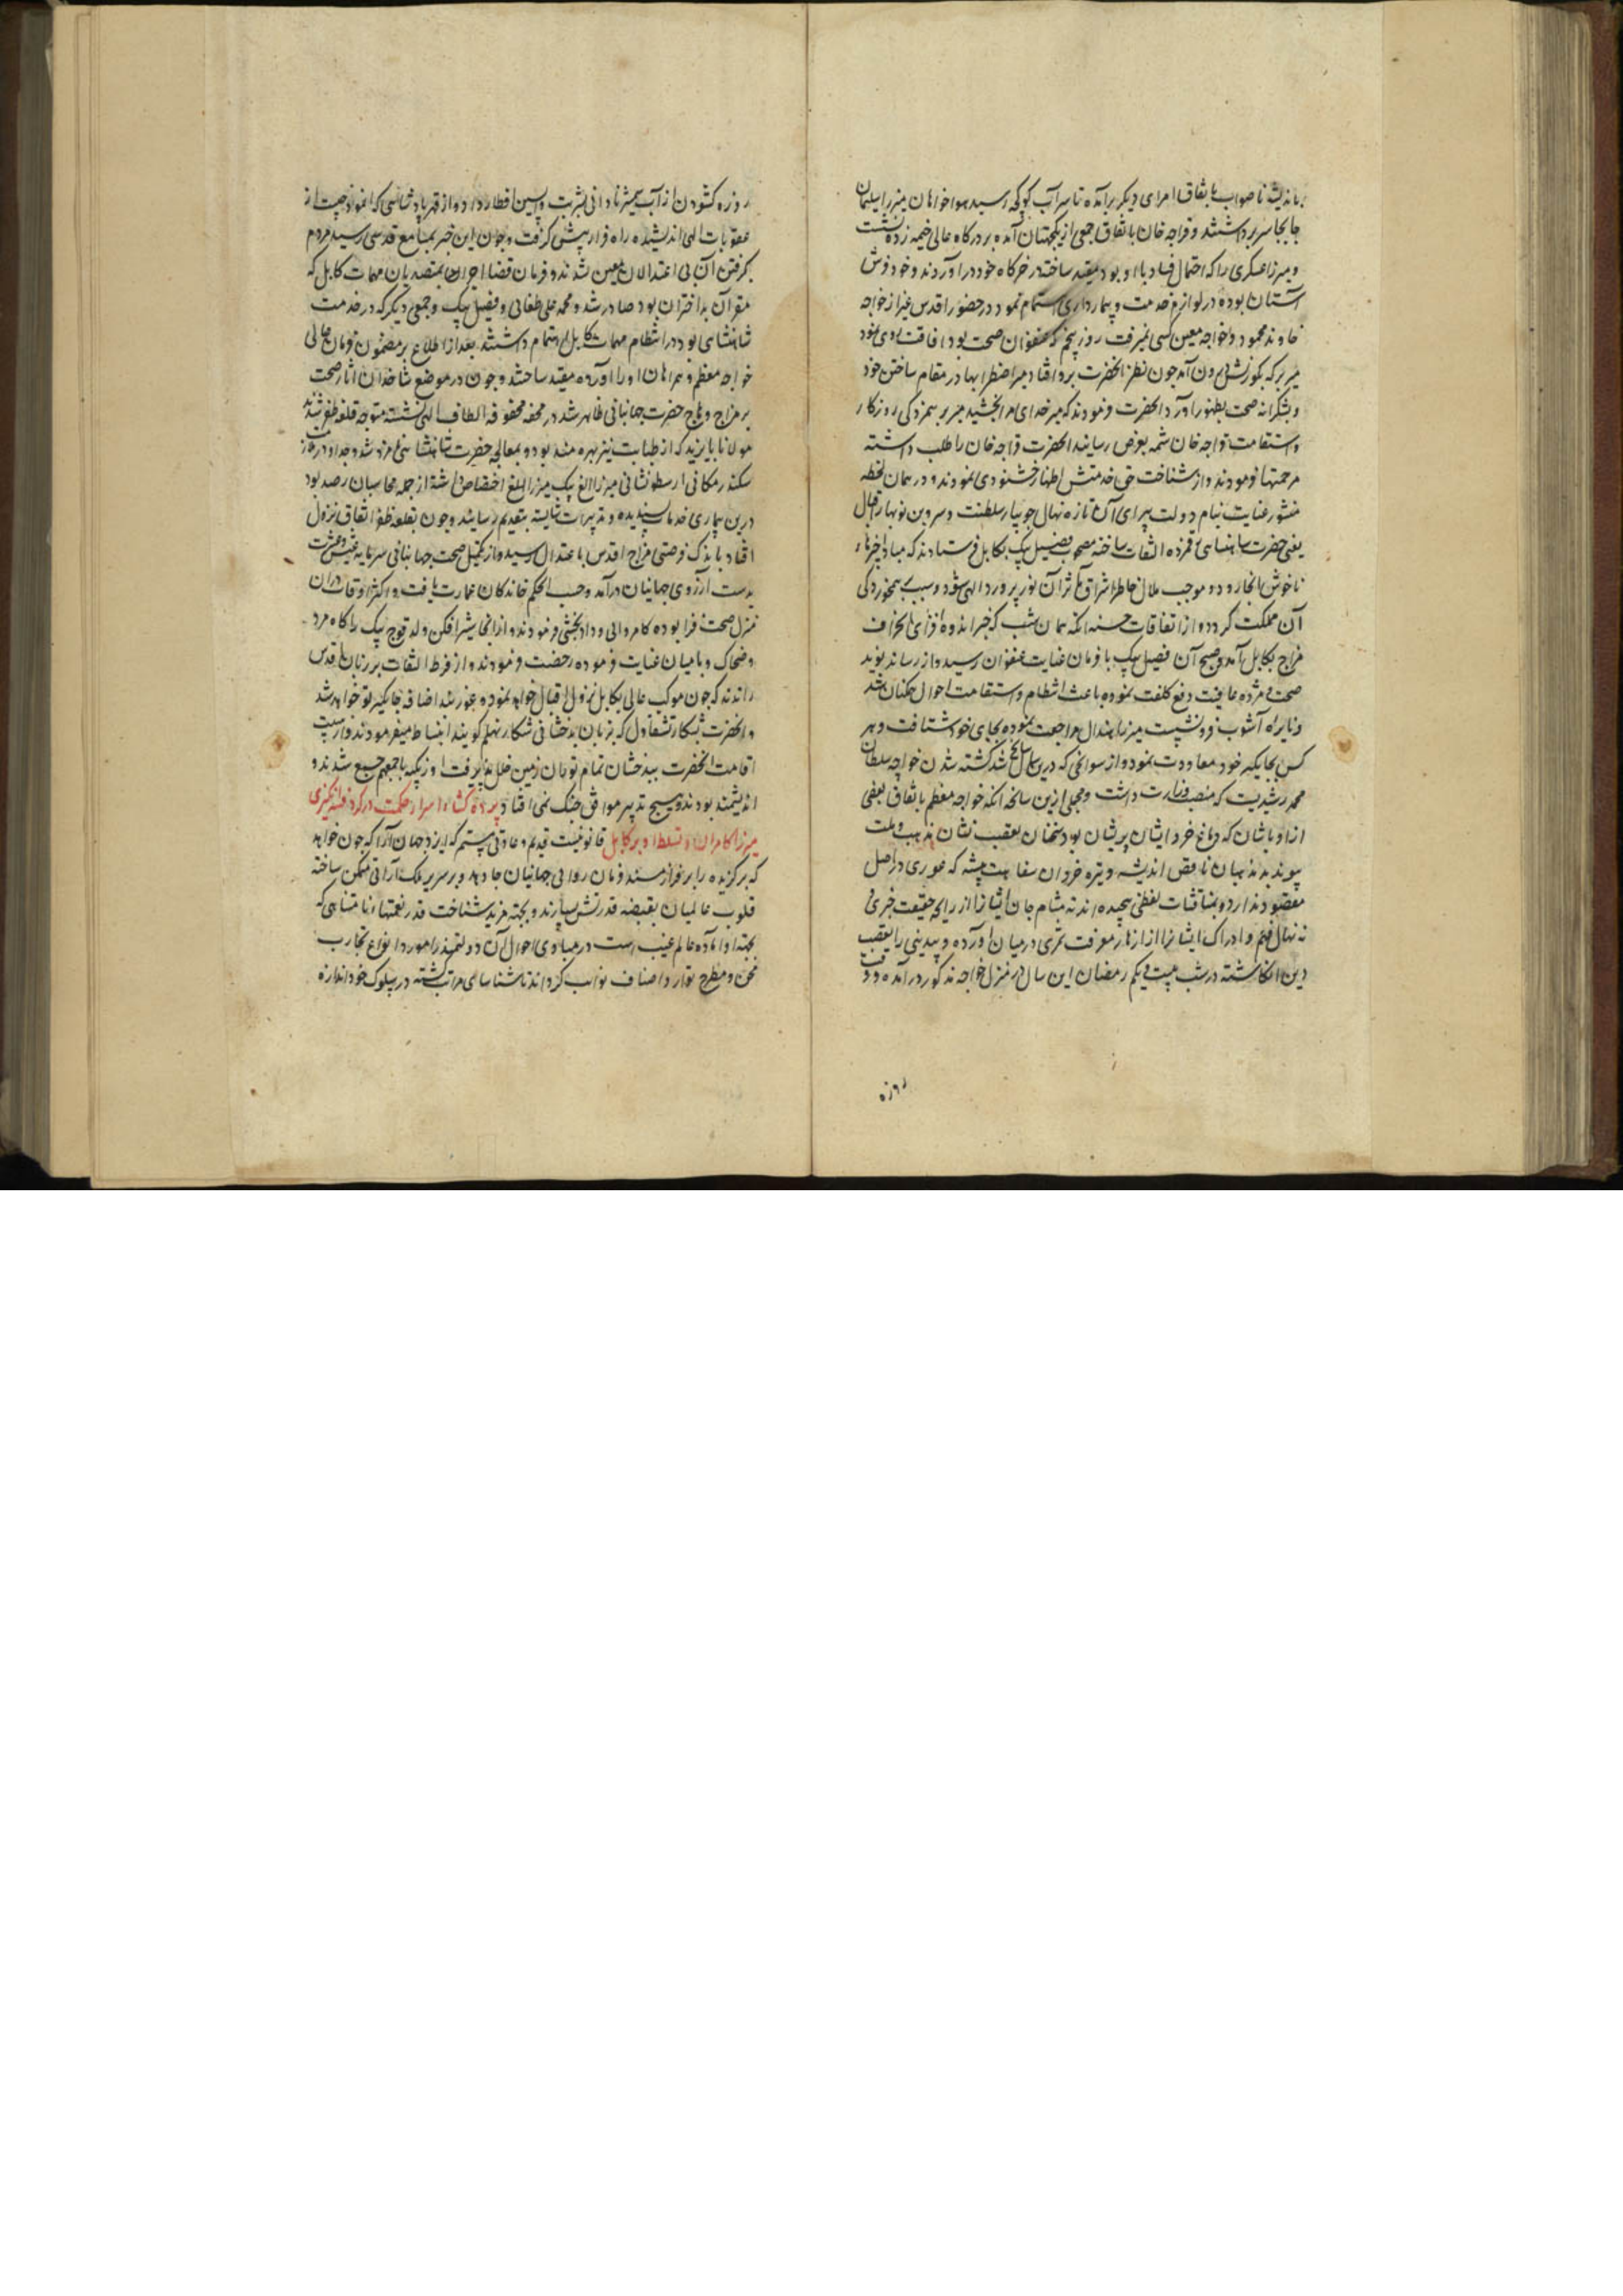 باندیشه ناصواب باتفاق امرای دیگر برآمده تا سرآب کوکه رسید هواخواهان میرزا سلیمان
جابجا سر برداشتند و قراجه خان باتفاق جمعی از یکجهتان آمده بر درگاه عالی خیمه زده نشست
و میرزا عسکری را که احتمال فساد با او بود مقید ساخته در خرگاه خود درآوردند و خود فرش
آستان بوده در لوازم خدمت و بیمارداری اهتمام نمود در حضور اقدس غیر از خواجه
خاوند محمود و خواجه معین کسی نمیرفت روز پنجم که عنفوان صحت بود افاقت روی نمود
میر برکه بکورنش درون آمد چون نظر آنحضرت برو افتاد میر اضطرابها در مقام ساختن خود
و بشکرانه صحت بظهور آورد آنحضرت فرمودند که میر خدای مرا بخشید میر بر همزدگی روزگار
و استقامت قراجه خان شمه بعرض رسانید آنحضرت قراجه خان را طلب داشته
مرحمتها فرمودند و از شناخت حق خدمتش اظهار خشنودی نمودند و در همان لحظه
منشور عنایت بنام دولت پیرای آن تازه نهال جویبار سلطنت و سروبن نوبهار اقبال
یعنی حضرت شاهنشاهی رقمزده التفات ساخته مصحوب فضیل بیک بکابل فرستادند که مبادا خبرهاء
ناخوش آنجا رود و موجب ملال خاطر اشراق ماثر آن نور پرورد الهی شود و سبب بهمخوردگی
آن مملکت گردد و از اتفاقات حسنه آنکه همان شب که خبر اندوه افزای انحراف
مزاج بکابل آمد و صبح آن فضیل بیک با فرمان عنایت عنفوان رسید و از رسانه نوید
صحت و مژده عافیت دفع کلفت نموده باعث انتظام و استقامت احوال همکنان شد
و نایره آشوب فرو نشست میرزا هندال مراجعت نموده بجای خود شتافت و هر
کس بجایگیر خود معاودت نمود و از سوانحی که درین سال سانح شد گشته شدن خواجه سلطان
محمد رشیدیست که منصب وزارت داشت و مجملی ازین سانحه آنکه خواجه معظم باتفاق بعضی
از اوباشان که دماغ خرد ایشان پریشان بود سخنان تعقب نشان مذهب و ملت
پیوند بد مذهبان ناقص اندیشه و تیره خردان سفاهت پیشه که غوری در اصل
مقصود ندارد و بمناقشات لفظی پیچیده اند نه بمشام جان ایشانرا از رایحه حقیقت خبری
نه نهال فهم و ادراک ایشانرا از ازهار معرفت ثمری درمیان آورده و بیدینی را تعقب
دین انکاشته در شب بیست و یکم رمضان این سال در منزل خواجه مذکور درآمده وقت
روزه
روزه کشودن از آب شمشیر نادانی بشربت واپسین افطار داد و از قهر پادشاهی که انموذجیست از
عقوبات الهی اندیشیده راه فرار پیش گرفت و چون این خبر بمسامع قدسی رسید مردم
بگرفتن آن بی اعتدالان معین شدند و فرمان قضا جریان بمتصدیان مهمات کابل که
مقر آن بداختران بود صادر شد و محمد علی طغائی و فضیل بیک و جمعی دیگر که در خدمت
شاهنشاهی بود در انتظام مهمات کابل اهتمام داشتند بعد از اطلاع بر مضمون فرمان عالی
خواجه معظم و همراهان او را آورده مقید ساختند و چون در موضع شاخدان آثار صحت
بر مزاج وهاج حضرت جهانبانی ظاهر شد در محفه محفوفه الطاف الهی نشسته متوجه قلعه ظفر شدند
مولانا بایزید که از طبابت نیز بهره مند بود و بمعالجه حضرت شاهنشاهی نامزد شد و جد او در خدمت
سکندر مکانی ارسطو نشانی میرزا الغ بیک میرزا بلیغ اختصاص داشته از جمله محاسبان رصد بود
درین بیماری خدمات پسندیده و تدبیرات شایسته بتقدیم رسانید و چون بقلعه ظفر اتفاق نزول
افتاد باندک فرصتی مزاج اقدس باعتدال رسید و از تکمیل صحت جهانبانی سرمایه عیش و عشرت
بدست آرزوی جهانیان درآمد و حسب الحکم خاندکان عمارت یافت و اکثر اوقات دران
منزل صحت فزا بوده کامروائی و دادبخشی فرمودند و ازانجا شیرافکن ولد قوج بیک را کاه مرد
و ضحاک و بامیان عنایت فرموده رخصت فرمودند و از فرط التفات بر زبان اقدس
راندند که چون موکب عالی بکابل نزول اقبال خواهد نمود غوربند اضافه جایگیر تو خواهد شد
و آنحضرت بشکار تشقاول که بزبان بدخشانی شکار نهلم گویند انبساط میفرمودند و از سبب
اقامت آنحضرت ببدخشان تمام توران زمین خلل پذیرفت اوزبکیه باجمعهم جمع شدند و
اندیشمند بودند و هیچ تدبیر موافق جنگ نمی افتاد پرده گشاء اسرار حکمت در گرد فتنه انگیزی
میرزا کامران و تسلط او بر کابل قانونیست قدیم و عادتی مستمر که ایزد جهان آرا که چون خواهد
که برگزیده را بر فراز مسند فرمان روائی جهانیان جا دهد و بر سریر ملک آرائی متمکن ساخته
قلوب عالمیان بقبضه قدرتش سپارند و بجهت مزید شناخت قدر نعمتهاء نامتناهی که
بجهت او آماده عالم غیب است در مبادی احوال آن دولتمند را مورد انواع تجارب
محن و مطرح توارد اصناف نوائب گرداند تا شناسای مراتب گشته در سلوک خود اندازه